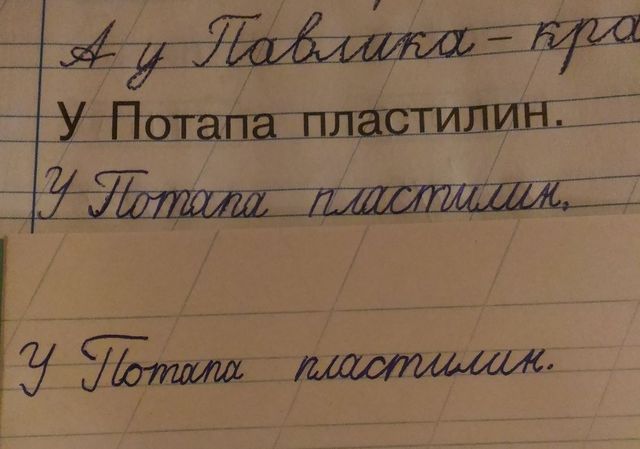 А у Павлика – кра
У Потапа пластилин.
У Потапа пластилин.
У Потапа пластилин.